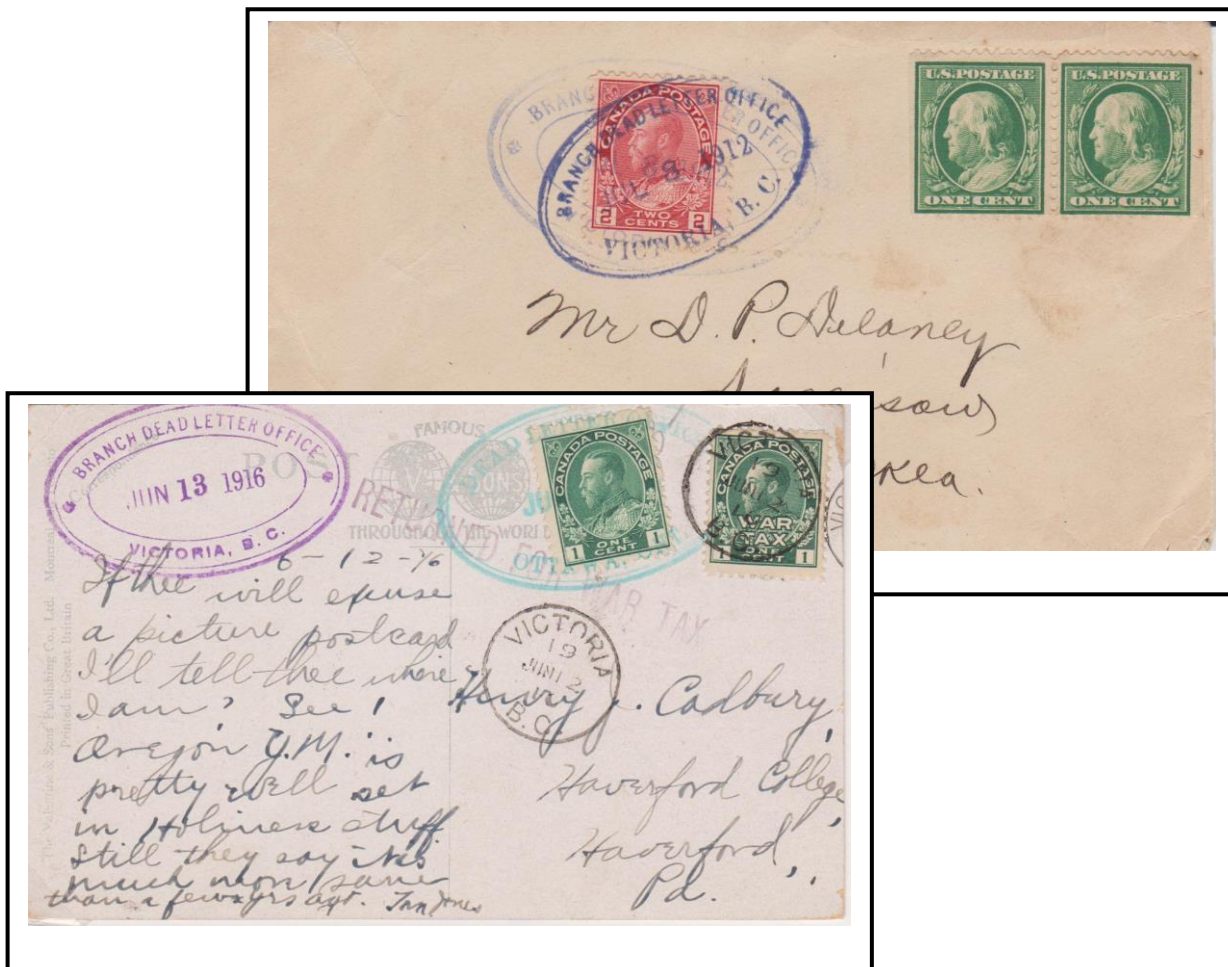 BRANCH DEAD LETTER OFFICE
CANADA POSTAGE
8 1912
2 TWO CENTS 2
VICTORIA, B. C.
U.S. POSTAGE
ONE CENT
U.S. POSTAGE
ONE CENT
Mr D. P. Delaney
BRANCH DEAD LETTER OFFICE
JUN 13 1916
VICTORIA, B. C.
FAMOUS
POST
THROUGHOUT THE WORLD
DEAD LETTER
CANADA POSTAGE
1 ONE CENT 1
CANADA POSTAGE
WAR TAX
1 ONE CENT 1
VICTORIA
19
JUN 12
B.C.
RETURNED FOR WAR TAX
VICTORIA
19
JUN 12
B.C.
The Valentine & Sons' Publishing Co., Ltd. Montreal
Printed in Great Britain
6-12-16
If thee will excuse
a picture postcard
I'll tell thee where
I am? See!
Oregon Y.M. is
pretty well set
in Holiness stuff.
Still they say
much more sane
than a few yrs ago.
Henry J. Cadbury,
Haverford College,
Haverford,
Pa.